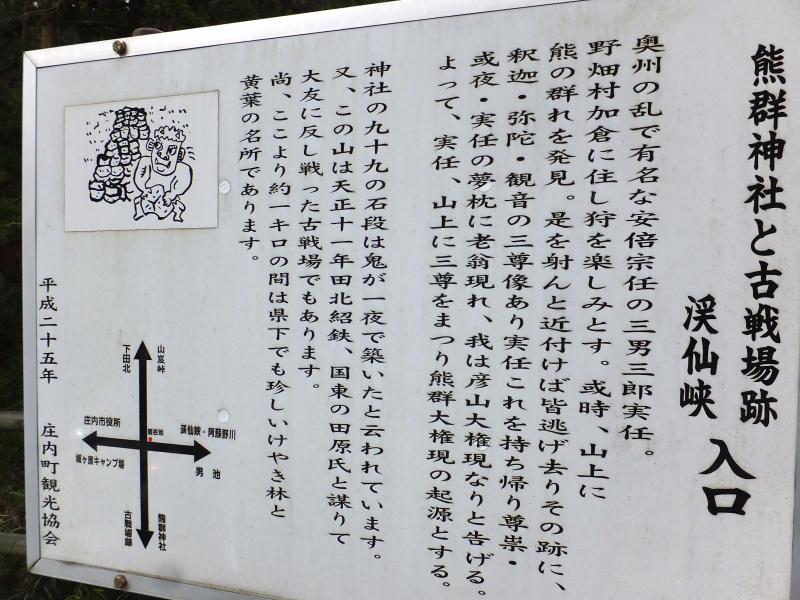 熊群神社と古戦場跡
渓仙峡
入口
奥州の乱で有名な安倍宗任の三男三郎実任。
野畑村加倉に住し狩を楽しみとす。或時、山上に
熊の群れを発見。是を射んと近付けば皆逃げ去りその跡に、
釈迦・弥陀・観音の三尊像あり実任これを持ち帰り尊祟・
或夜・実任の夢枕に老翁現れ、我は彦山大権現なりと告げる。
よって、実任、山上に三尊をまつり熊群大権現の起源とする。
神社の九十九の石段は鬼が一夜で築いたと云われています。
又、この山は天正十一年田北紹鉄、国東の田原氏と謀りて
大友に反し戦った古戦場でもあります。
尚、ここより約一キロの間は県下でも珍しいけやき林と
黄葉の名所であります。
山峠
下田北
庄内市役所
城ヶ原キャンプ場
現在地
渓仙峡・阿蘇野川
男池
熊群神社
古戦場跡
平成二十五年 庄内町観光協会